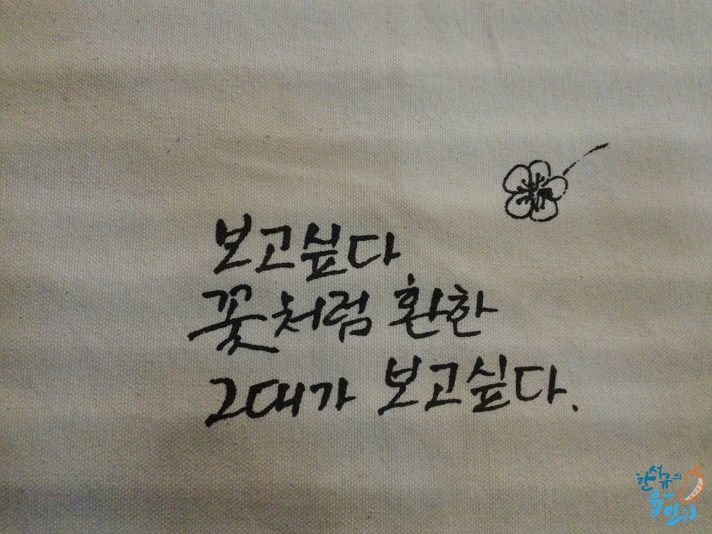 보고싶다
꽃처럼 환한
그대가 보고싶다.
한석규의